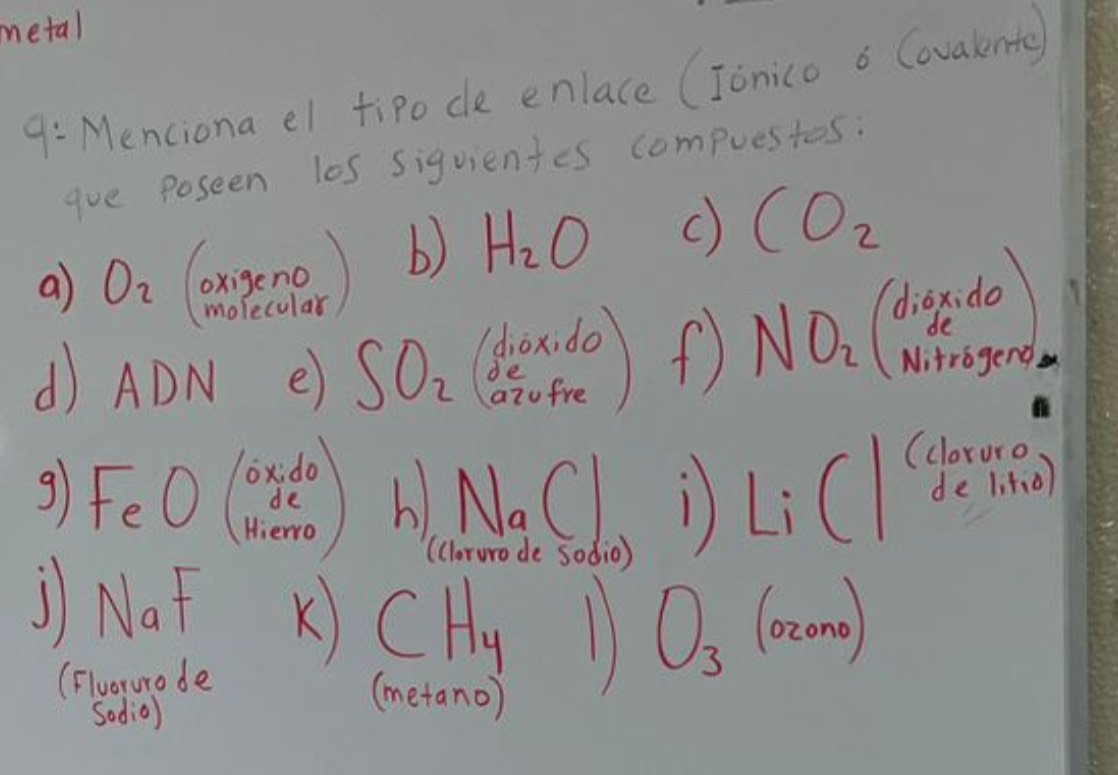 metal
9:- Menciona el tipo de enlace (Iónico ó Covalente)
que poseen los siguientes compuestos:
a) O₂ (oxigeno molecular) b) H₂O c) CO₂
d) ADN e) SO₂ (dióxido de azufre) f) NO₂ (dióxido de Nitrógeno)
g) FeO (óxido de Hierro) h) NaCl (Cloruro de Sodio) i) LiCl (cloruro de litio)
j) NaF (Fluoruro de Sodio) K) CH₄ (metano) l) O₃ (ozono)